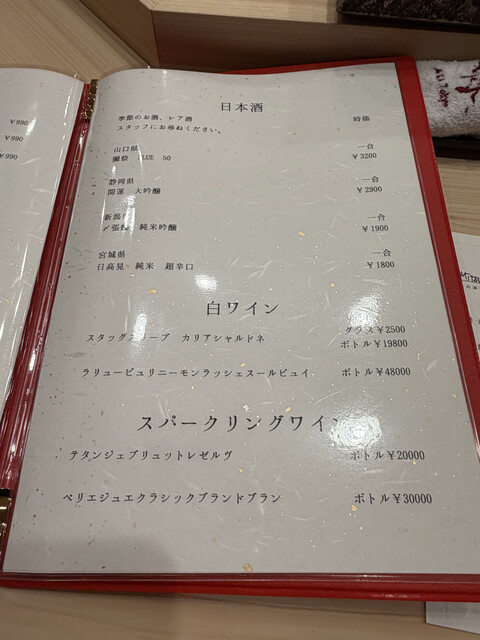 ¥990
¥990
¥990
日本酒
季節のお酒、レア酒 時価
スタッフにお尋ねください。
山口県 一合
獺祭 50 ¥3200
静岡県 一合
開運 大吟醸 ¥2900
新潟 一合
〆張 純米吟醸 ¥1900
宮城県 一合
日高見 純米 超辛口 ¥1800
白ワイン
グラス¥2500
スタッグスリープ カリアシャルドネ ボトル¥19800
ラリューピュリニーモンラッシェスールピュイ ボトル¥48000
スパークリングワイン
テタンジェブリュットレゼルヴ ボトル¥20000
ペリエジュエクラシックブランドブラン ボトル¥30000